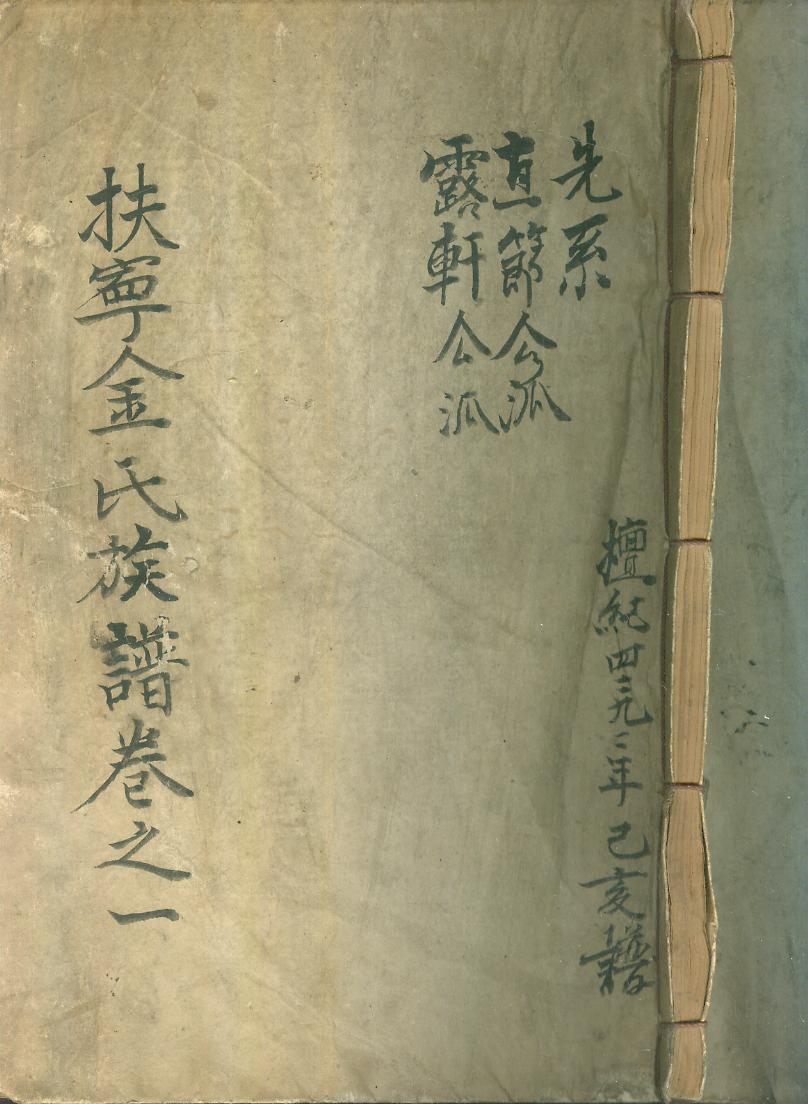 檀紀四二九二年己亥譜
先系
直節公派
露軒公派
扶寧金氏族譜卷之一